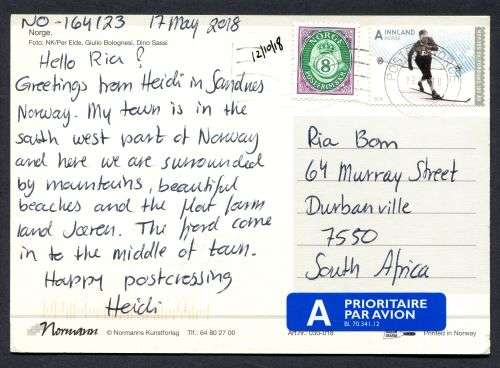 NO-164123 17 May 2018
Norge.
Foto: NK/Per Eide, Giulio Bolognesi, Dino Sassi
Hello Ria?
Greetings from Heidi in Sandnes
Norway. My town is in the
south west part of Norway
and here we are surrounded
by mountains, beautiful
beaches and the flat farm
land Jæren. The fjord come
in to the middle of town.
Happy postcrossing
Heidi
Normann
© Normanns Kunstforlag Tlf.: 64 80 27 00
12/10/18
NORGE
8
A INNLAND
NORGE
Ria Bom
64 Murray Street
Durbanville
7550
South Africa
A PRIORITAIRE
PAR AVION
BL 70.341.12
Art.nr. 030-018
Printed in Norway